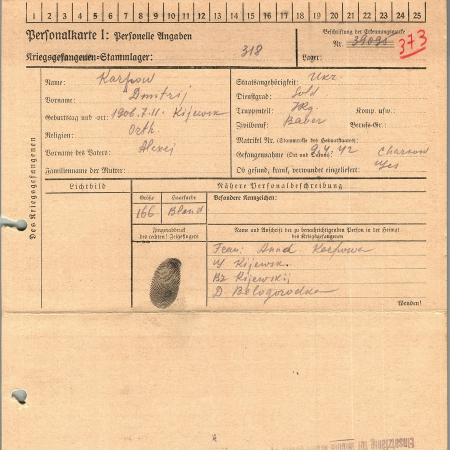 1 2 3 4 5 6 7 8 9 10 11 12 13 14 15 16 17 18 19 20 21 22 23 24 25
Personalkarte I: Personelle Angaben
Beschriftung der Erkennungsmarke
Kriegsgefangenen-Stammlager: 318
Nr. 373
Lager:
Des Kriegsgefangenen
Name: Karpow
Vorname: Dmitrij
Geburtstag und -ort: 1906.7.11. Kijewsk
Religion: Orth.
Vorname des Vaters: Alexej
Familienname der Mutter:
Staatsangehörigkeit: Ukr.
Dienstgrad: Sold
Truppenteil: Komp. usw.:
Zivilberuf: Bauer Berufs-Gr.:
Matrikel Nr. (Stammrolle des Heimatstaates):
Gefangennahme (Ort und Datum): 9.4.42 Charkow
Ob gesund, krank, verwundet eingeliefert:
Lichtbild
Nähere Personalbeschreibung
Größe Haarfarbe Besondere Kennzeichen:
166 Blond
Fingerabdruck
des rechten! Zeigefingers
Name und Anschrift der zu benachrichtigenden Person in der Heimat
des Kriegsgefangenen
Frau: Anna Karpowa
Kijewsk.
Kijewskij
D. Belogorodka
Wenden!